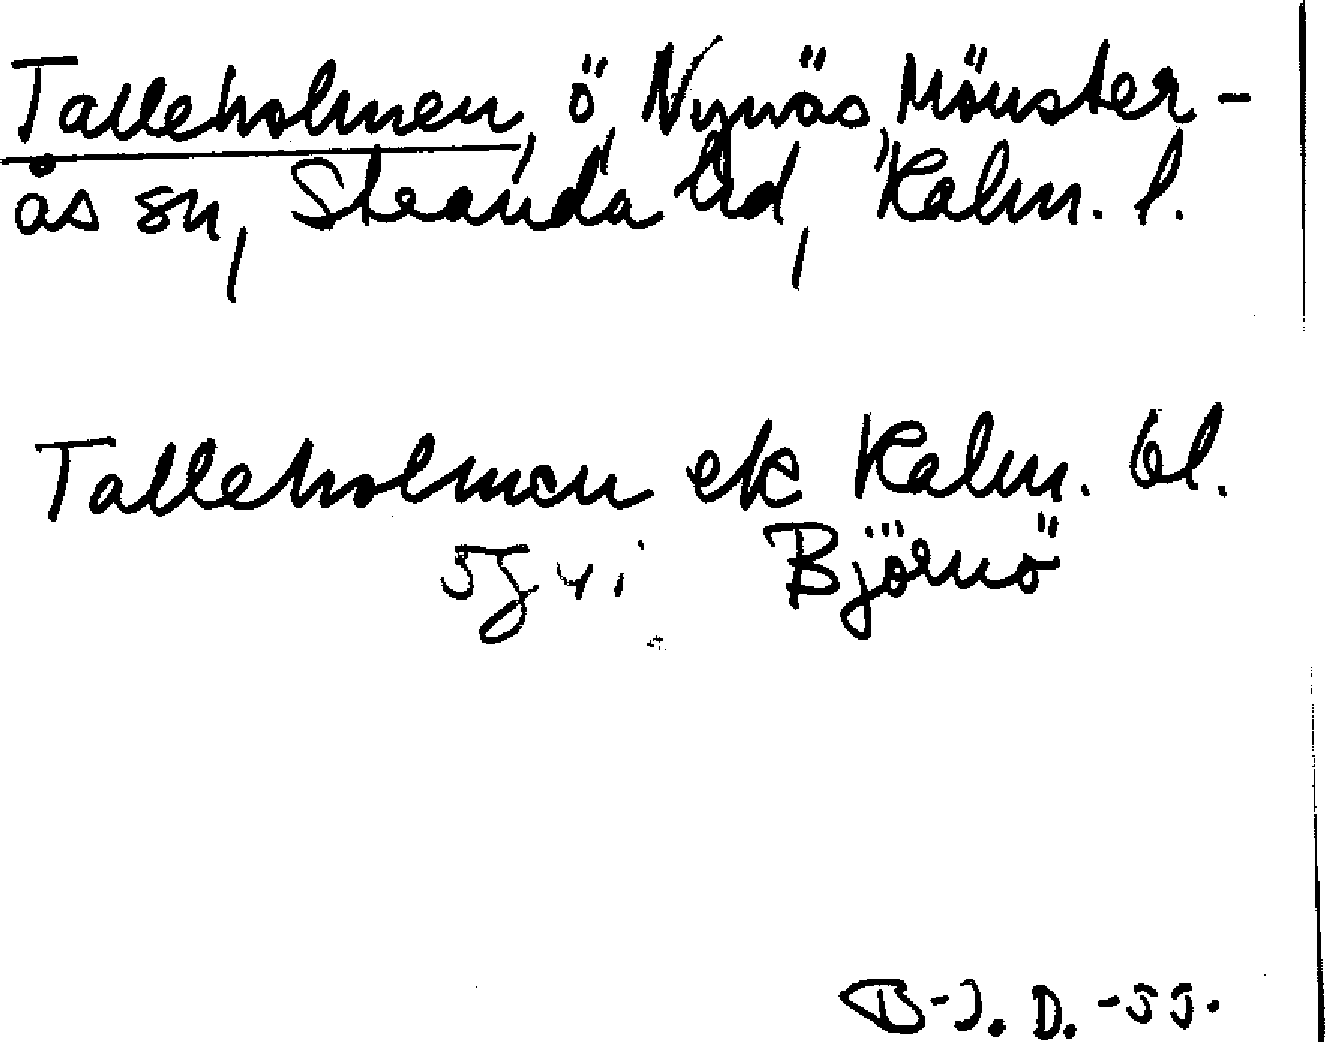 Talleholmen, ö, Nynäs, Mönster-
ås sn, Stranda hd, Kalm. l.
Talleholmen ek Kalm. bl.
5G 4i Björnö
B-J. D. -55.